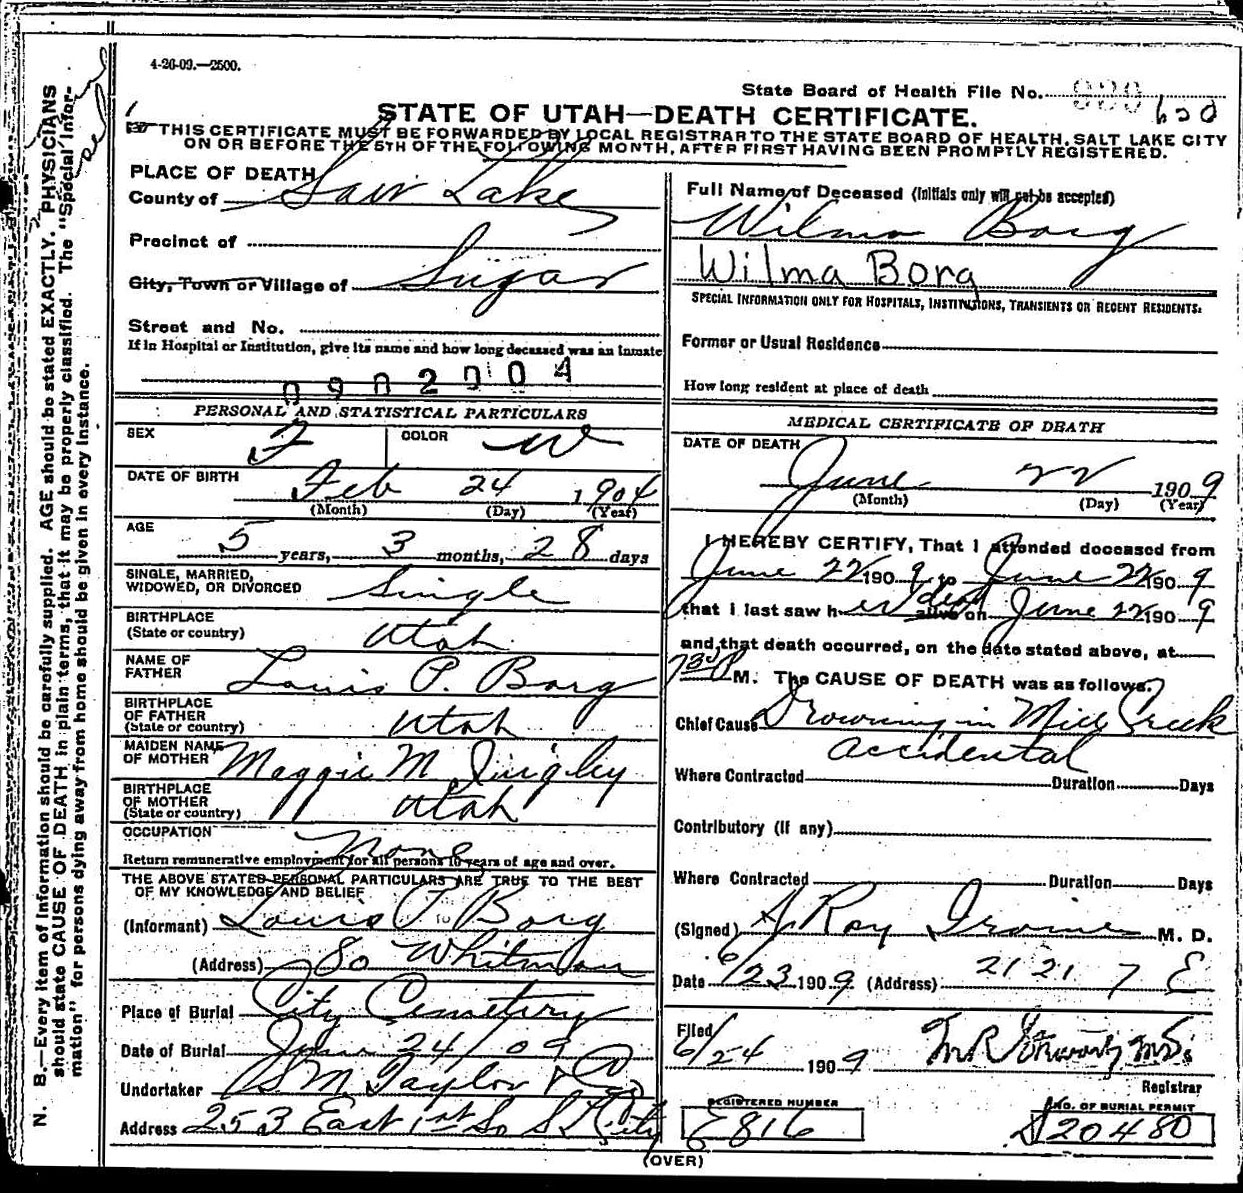 4-26-09.—2500.
State Board of Health File No. 620
STATE OF UTAH—DEATH CERTIFICATE.
THIS CERTIFICATE MUST BE FORWARDED BY LOCAL REGISTRAR TO THE STATE BOARD OF HEALTH, SALT LAKE CITY
ON OR BEFORE THE 5TH OF THE FOLLOWING MONTH, AFTER FIRST HAVING BEEN PROMPTLY REGISTERED.
N. B.—Every item of information should be carefully supplied. AGE should be stated EXACTLY. PHYSICIANS
should state CAUSE OF DEATH in plain terms, that it may be properly classified. The "Special Infor-
mation" for persons dying away from home should be given in every instance.
PLACE OF DEATH
County of Salt Lake
Precinct of
City, Town or Village of Sugar
Street and No.
If in Hospital or Institution, give its name and how long deceased was an inmate
PERSONAL AND STATISTICAL PARTICULARS
SEX F COLOR W
DATE OF BIRTH Feb 24 1904
(Month) (Day) (Year)
AGE 5 years, 3 months, 28 days
SINGLE, MARRIED,
WIDOWED, OR DIVORCED Single
BIRTHPLACE
(State or country) Utah
NAME OF
FATHER Louis P. Borg
BIRTHPLACE
OF FATHER
(State or country) Utah
MAIDEN NAME
OF MOTHER Maggie M
BIRTHPLACE
OF MOTHER
(State or country) Utah
OCCUPATION None
Return remunerative employment for all persons 10 years of age and over.
THE ABOVE STATED PERSONAL PARTICULARS ARE TRUE TO THE BEST
OF MY KNOWLEDGE AND BELIEF
(Informant) Louis P. Borg
(Address) 80 Whitman
Place of Burial City Cemetery
Date of Burial June 24/09
Undertaker S M Taylor & Co
Address 253 East 1st So S L City
Full Name of Deceased (Initials only will not be accepted)
Wilma Borg
Wilma Borg
SPECIAL INFORMATION ONLY FOR HOSPITALS, INSTITUTIONS, TRANSIENTS OR RECENT RESIDENTS:
Former or Usual Residence
How long resident at place of death
MEDICAL CERTIFICATE OF DEATH
DATE OF DEATH
June 22 1909
(Month) (Day) (Year)
I HEREBY CERTIFY, That I attended deceased from
June 22 1909, to June 22 1909
that I last saw her dead alive on June 22 1909
and that death occurred, on the date stated above, at
730 P M. The CAUSE OF DEATH was as follows:
Chief Cause Drowning in Mill Creek
accidental
Where Contracted Duration Days
Contributory (if any)
Where Contracted Duration Days
(Signed) J Roy Irvine M. D.
Date 6/23 1909 (Address) 2121 7 E
Filed
6/24 1909
Registrar
REGISTERED NUMBER
E816
NO. OF BURIAL PERMIT
20480
(OVER)